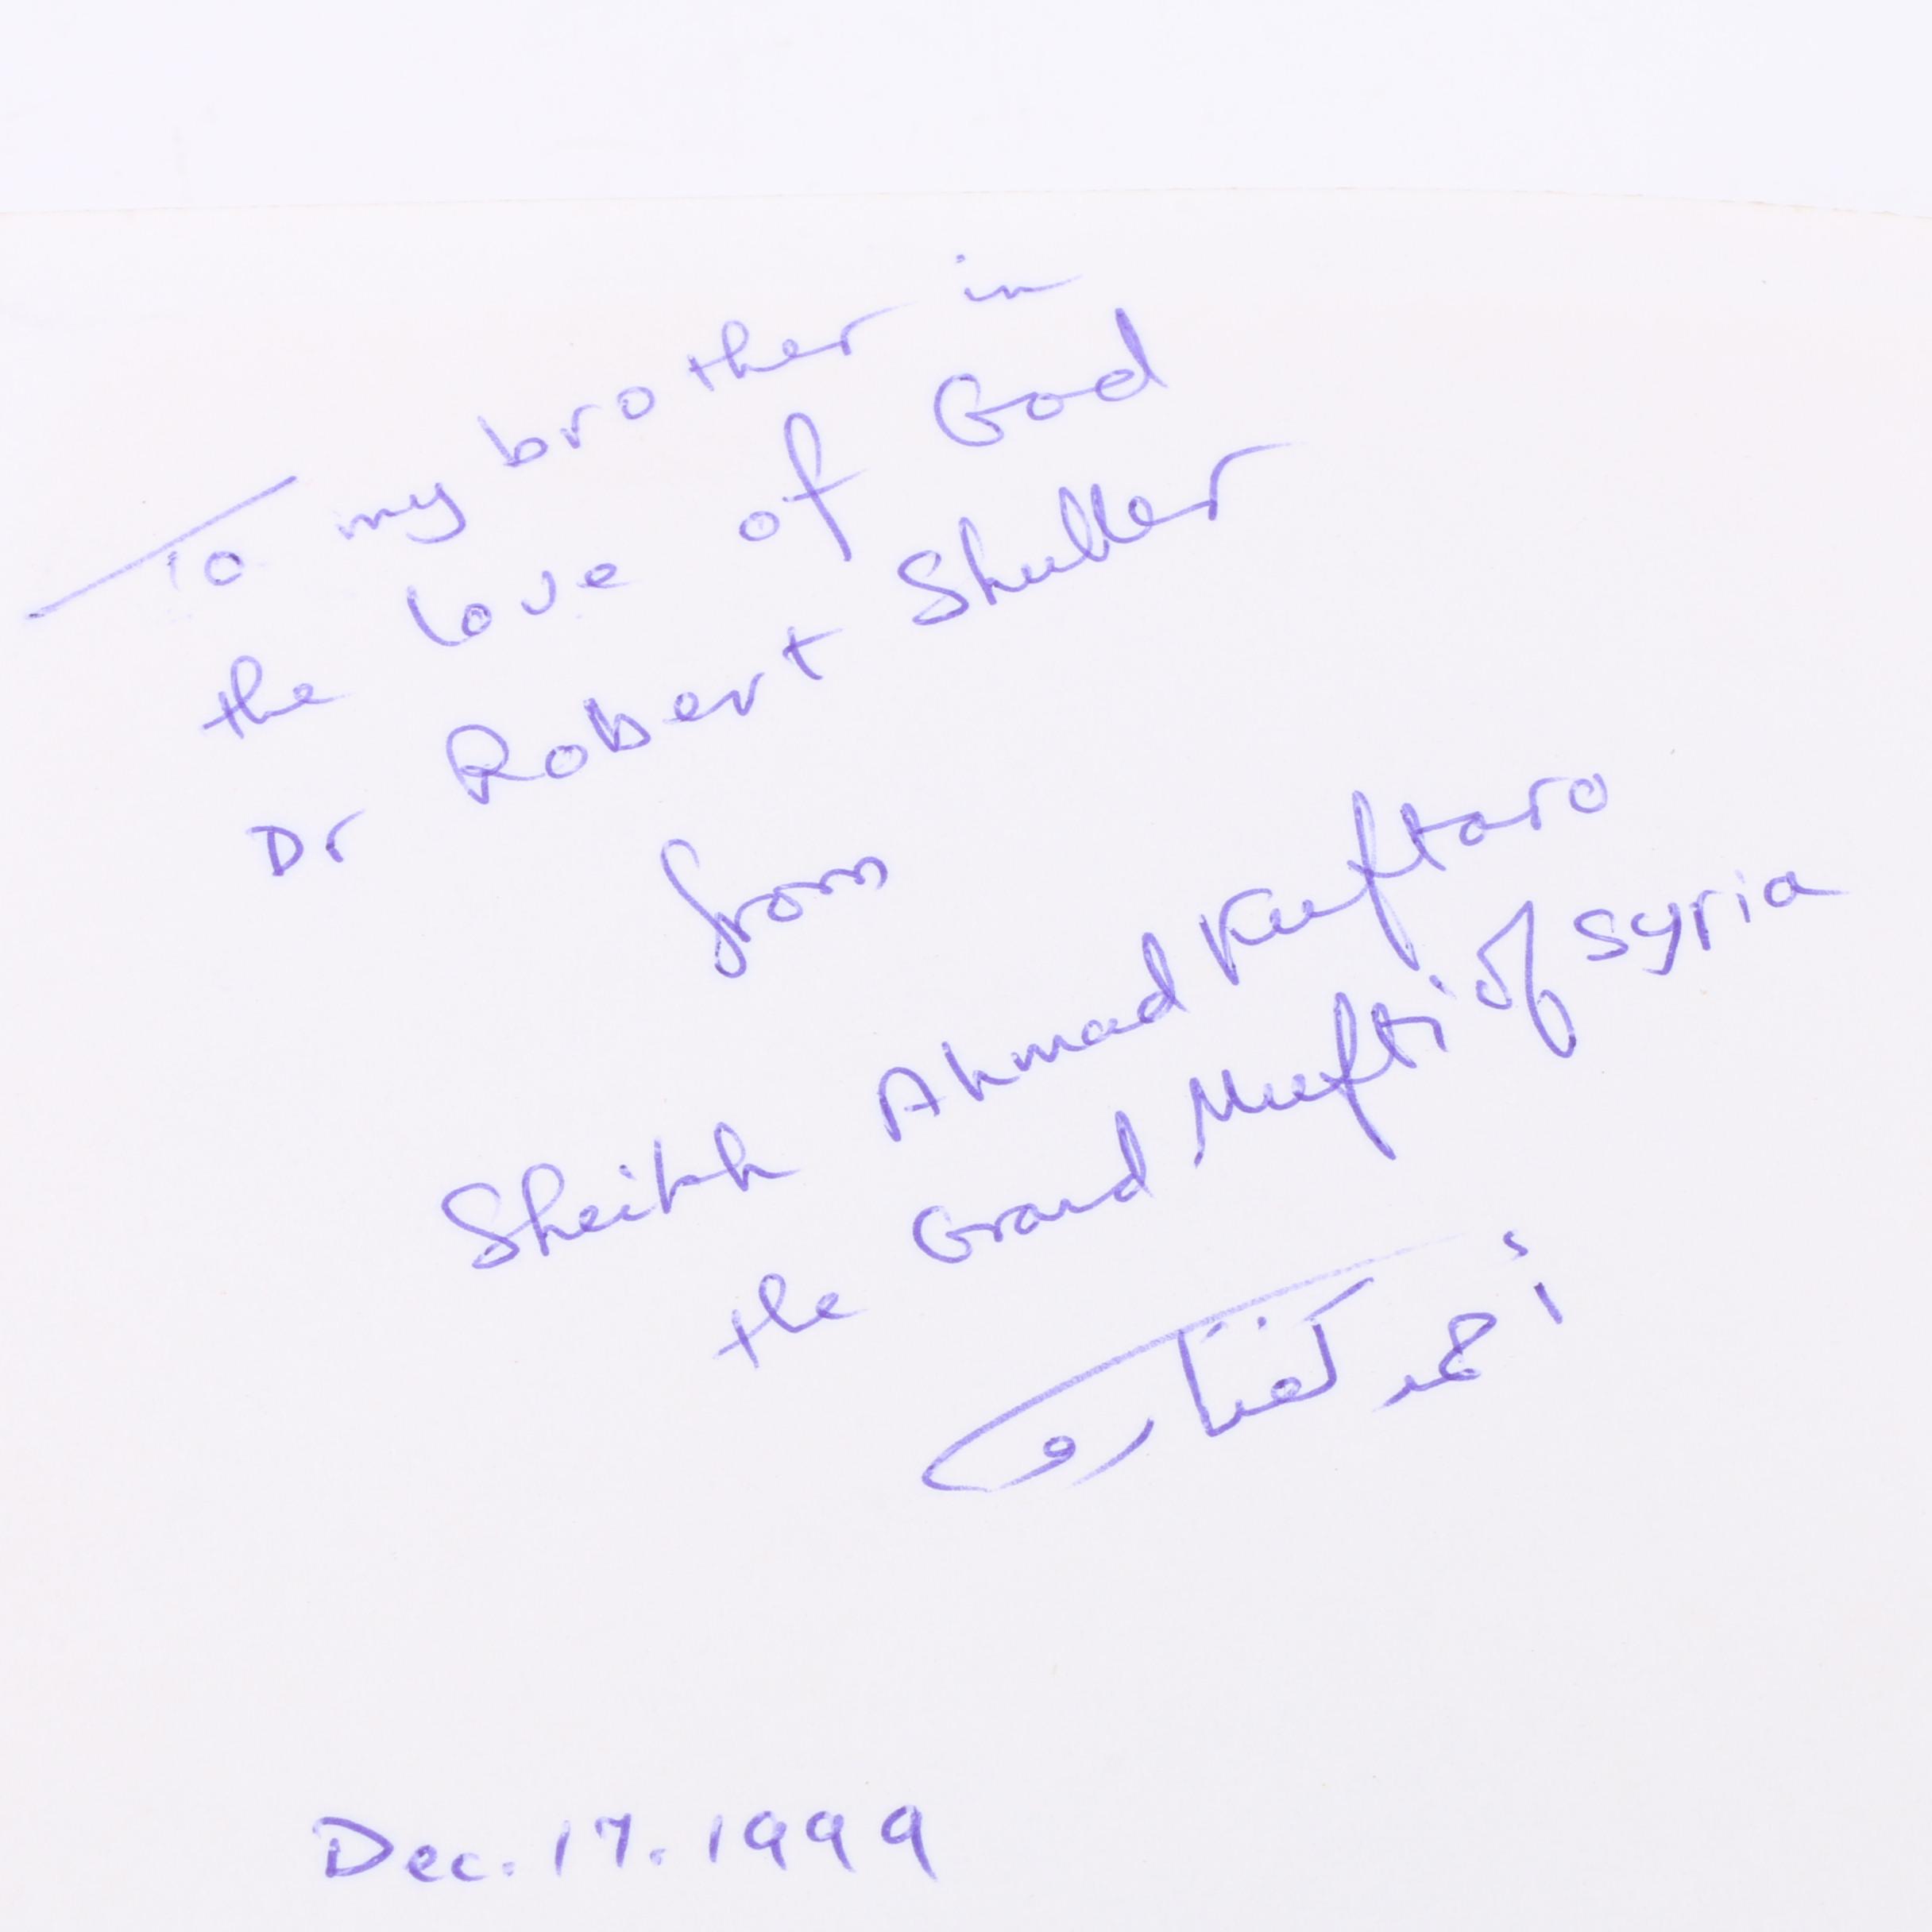 To my brother in
the love of God
Dr Robert Shuller
from
Sheikh Ahmad Kuftaro
the Grand Mufti of Syria
أحمد كفتارو
Dec. 17. 1999